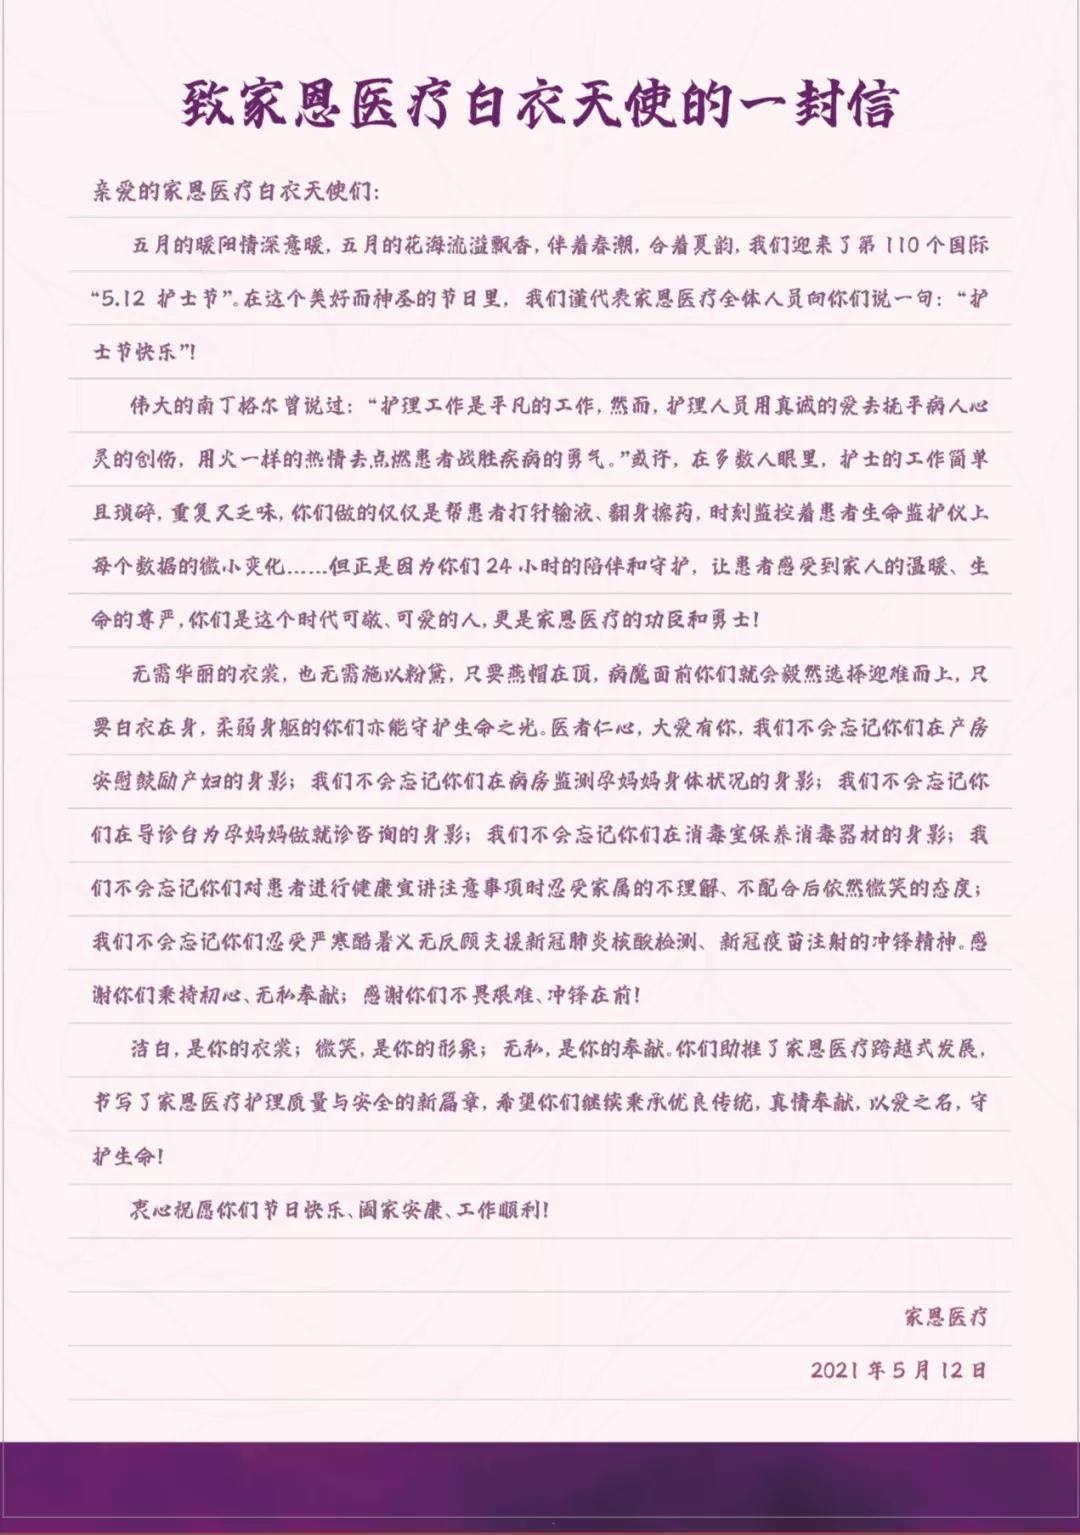 致家恩医疗白衣天使的一封信
亲爱的家恩医疗白衣天使们：
五月的暖阳情深意暖，五月的花海流溢飘香，伴着春潮，合着夏韵，我们迎来了第110个国际
“5.12 护士节”。在这个美好而神圣的节日里，我们谨代表家恩医疗全体人员向你们说一句：“护
士节快乐”！
伟大的南丁格尔曾说过：“护理工作是平凡的工作，然而，护理人员用真诚的爱去抚平病人心
灵的创伤，用火一样的热情去点燃患者战胜疾病的勇气。”或许，在多数人眼里，护士的工作简单
且琐碎，重复又乏味，你们做的仅仅是帮患者打针输液、翻身擦药，时刻监控着患者生命监护仪上
每个数据的微小变化……但正是因为你们24小时的陪伴和守护，让患者感受到家人的温暖、生
命的尊严，你们是这个时代可敬、可爱的人，更是家恩医疗的功臣和勇士！
无需华丽的衣裳，也无需施以粉黛，只要燕帽在顶，病魔面前你们就会毅然选择迎难而上，只
要白衣在身，柔弱身躯的你们亦能守护生命之光。医者仁心，大爱有你，我们不会忘记你们在产房
安慰鼓励产妇的身影；我们不会忘记你们在病房监测孕妈妈身体状况的身影；我们不会忘记你
们在导诊台为孕妈妈做就诊咨询的身影；我们不会忘记你们在消毒室保养消毒器材的身影；我
们不会忘记你们对患者进行健康宣讲注意事项时忍受家属的不理解、不配合后依然微笑的态度；
我们不会忘记你们忍受严寒酷暑义无反顾支援新冠肺炎核酸检测、新冠疫苗注射的冲锋精神。感
谢你们秉持初心、无私奉献；感谢你们不畏艰难、冲锋在前！
洁白，是你的衣裳；微笑，是你的形象；无私，是你的奉献。你们助推了家恩医疗跨越式发展，
书写了家恩医疗护理质量与安全的新篇章，希望你们继续秉承优良传统，真情奉献，以爱之名，守
护生命！
衷心祝愿你们节日快乐、阖家安康、工作顺利！
家恩医疗
2021年5月12日